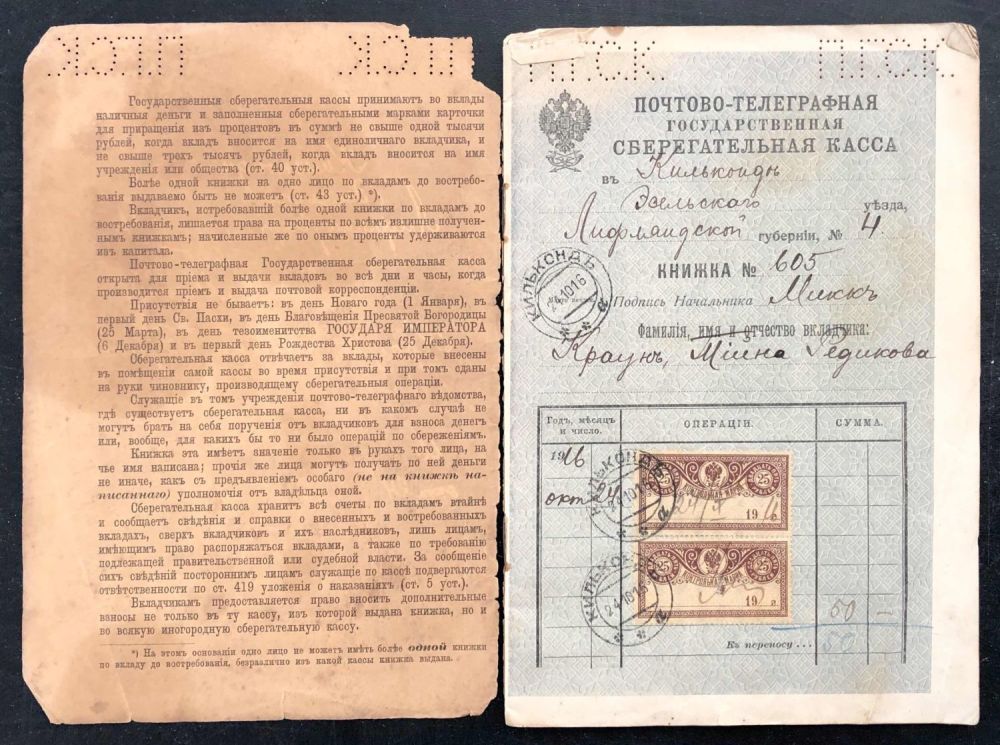 П.Г.СК. П.Г.СК.
Государственныя сберегательныя кассы принимаютъ во вклады
наличныя деньги и заполненныя сберегательными марками карточки
для приращенія изъ процентовъ въ суммѣ не свыше одной тысячи
рублей, когда вкладъ вносится на имя единоличнаго вкладчика, и
не свыше трехъ тысячъ рублей, когда вкладъ вносится на имя
учрежденія или общества (ст. 40 уст.).
Болѣе одной книжки на одно лицо по вкладамъ до востребо-
ванія выдаваемо быть не можетъ (ст. 43 уст.) *).
Вкладчикъ, истребовавшій болѣе одной книжки по вкладамъ до
востребованія, лишается права на проценты по всѣмъ излишне получен-
нымъ книжкамъ; начисленные же по онымъ проценты удерживаются
изъ капитала.
Почтово-телеграфная Государственная сберегательная касса
открыта для пріема и выдачи вкладовъ во всѣ дни и часы, когда
производится пріемъ и выдача почтовой корреспонденціи.
Присутствія не бываетъ: въ день Новаго года (1 Января), въ
первый день Св. Пасхи, въ день Благовѣщенія Пресвятой Богородицы
(25 Марта), въ день тезоименитства ГОСУДАРЯ ИМПЕРАТОРА
(6 Декабря) и въ первый день Рождества Христова (25 Декабря).
Сберегательная касса отвѣчаетъ за вклады, которые внесены
въ помѣщеніи самой кассы во время присутствія и при томъ сданы
на руки чиновнику, производящему сберегательныя операціи.
Служащіе въ томъ учрежденіи почтово-телеграфнаго вѣдомства,
гдѣ существуетъ сберегательная касса, ни въ какомъ случаѣ не
могутъ брать на себя порученія отъ вкладчиковъ для взноса денегъ
или, вообще, для какихъ бы то ни было операцій по сбереженіямъ.
Книжка эта имѣетъ значеніе только въ рукахъ того лица, на
чье имя написана; прочія же лица могутъ получать по ней деньги
не иначе, какъ съ предъявленіемъ особаго (не на книжкѣ на-
писаннаго) уполномочія отъ владѣльца оной.
Сберегательная касса хранитъ всѣ счеты по вкладамъ втайнѣ
и сообщаетъ свѣдѣнія и справки о внесенныхъ и востребованныхъ
вкладахъ, сверхъ вкладчиковъ и ихъ наслѣдниковъ, лишь лицамъ,
имѣющимъ право распоряжаться вкладами, а также по требованію
подлежащей правительственной или судебной власти. За сообщеніе
сихъ свѣдѣній постороннимъ лицамъ служащіе по кассѣ подвергаются
отвѣтственности по ст. 419 уложенія о наказаніяхъ (ст. 5 уст.).
Вкладчикамъ предоставляется право вносить дополнительные
взносы не только въ ту кассу, изъ которой выдана книжка, но и
во всякую иногородную сберегательную кассу.
*) На этомъ основаніи одно лицо не можетъ имѣть болѣе одной книжки
по вкладу до востребованія, безразлично изъ какой кассы книжка выдана.
П.Г.СК. П.Г.СК.
ПОЧТОВО-ТЕЛЕГРАФНАЯ
ГОСУДАРСТВЕННАЯ
СБЕРЕГАТЕЛЬНАЯ КАССА
въ Килькондѣ
Эзельскаго уѣзда,
Лифляндской губерніи, № 4
КНИЖКА № 605
КИЛЬКОНДЪ
24 10 16
а
Подпись Начальника Миккъ
Фамилія, имя и отчество вкладчика:
Краунъ, Мійна Редикова
Годъ, мѣсяцъ и число. ОПЕРАЦІИ. СУММА.
1916
окт 24
КИЛЬКОНДЪ
24 10 16
а
25 25
24/X 1916
КИЛЬКОНДЪ
24 10 16
а
25 25
19 г.
50 —
Къ переносу ... 50